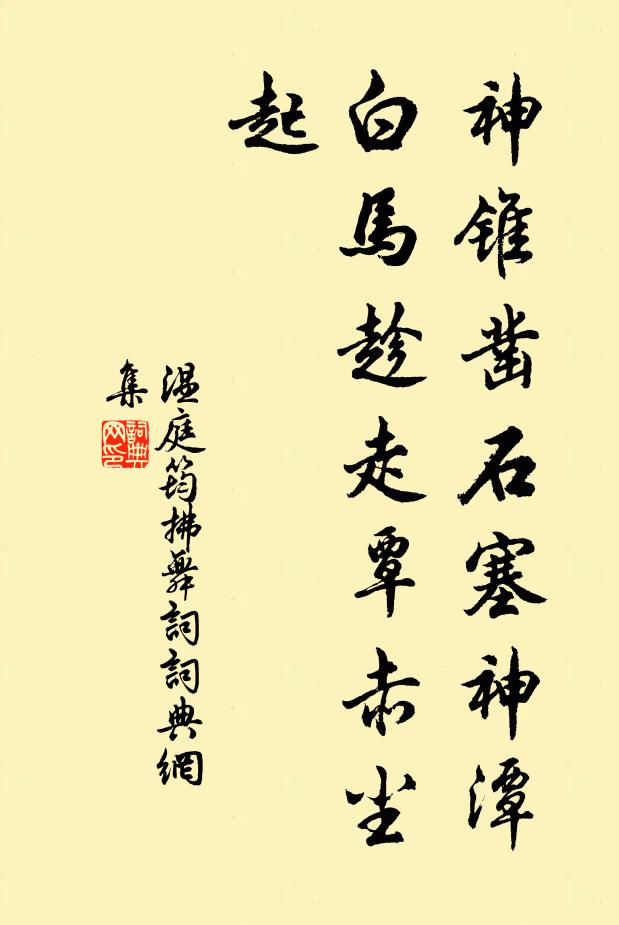 神錐凿石塞神潭
白馬趁走覃赤尘
起
温庭筠拂舞詞詞典網
集
詞典
网印